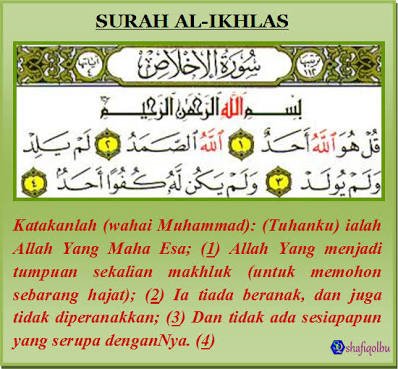 SURAH AL-IKHLAS
ترتيبها
سُورَةُ الْإِخْلَاصِ
آياتها ٤
بِسْمِ اللَّهِ الرَّحْمَٰنِ الرَّحِيمِ
قُلْ هُوَ اللَّهُ أَحَدٌ ١ اللَّهُ الصَّمَدُ ٢ لَمْ يَلِدْ
وَلَمْ يُولَدْ ٣ وَلَمْ يَكُن لَّهُ كُفُوًا أَحَدٌ ٤
Katakanlah (wahai Muhammad): (Tuhanku) ialah
Allah Yang Maha Esa; (1) Allah Yang menjadi
tumpuan sekalian makhluk (untuk memohon
sebarang hajat); (2) Ia tiada beranak, dan juga
tidak diperanakkan; (3) Dan tidak ada sesiapapun
yang serupa denganNya. (4)
shafiqolbu